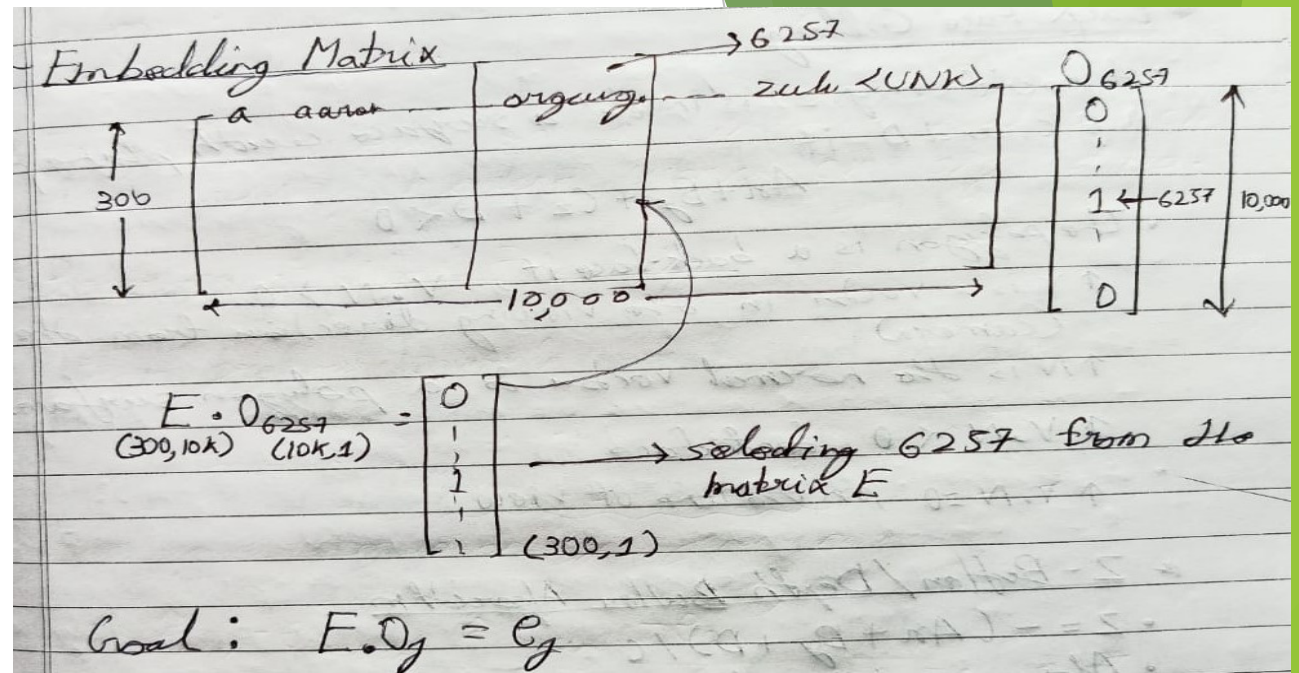 Embedding Matrix
→ 6257
a aaron --- organg. --- zulu <UNK>
O6257
300
10,000
0
1 ← 6257
0
10,000
E . O6257 =
(300,10k) (10k,1)
0
1
(300,1)
→ selecting 6257 from the
matrix E
Goal : E.Oj = ej